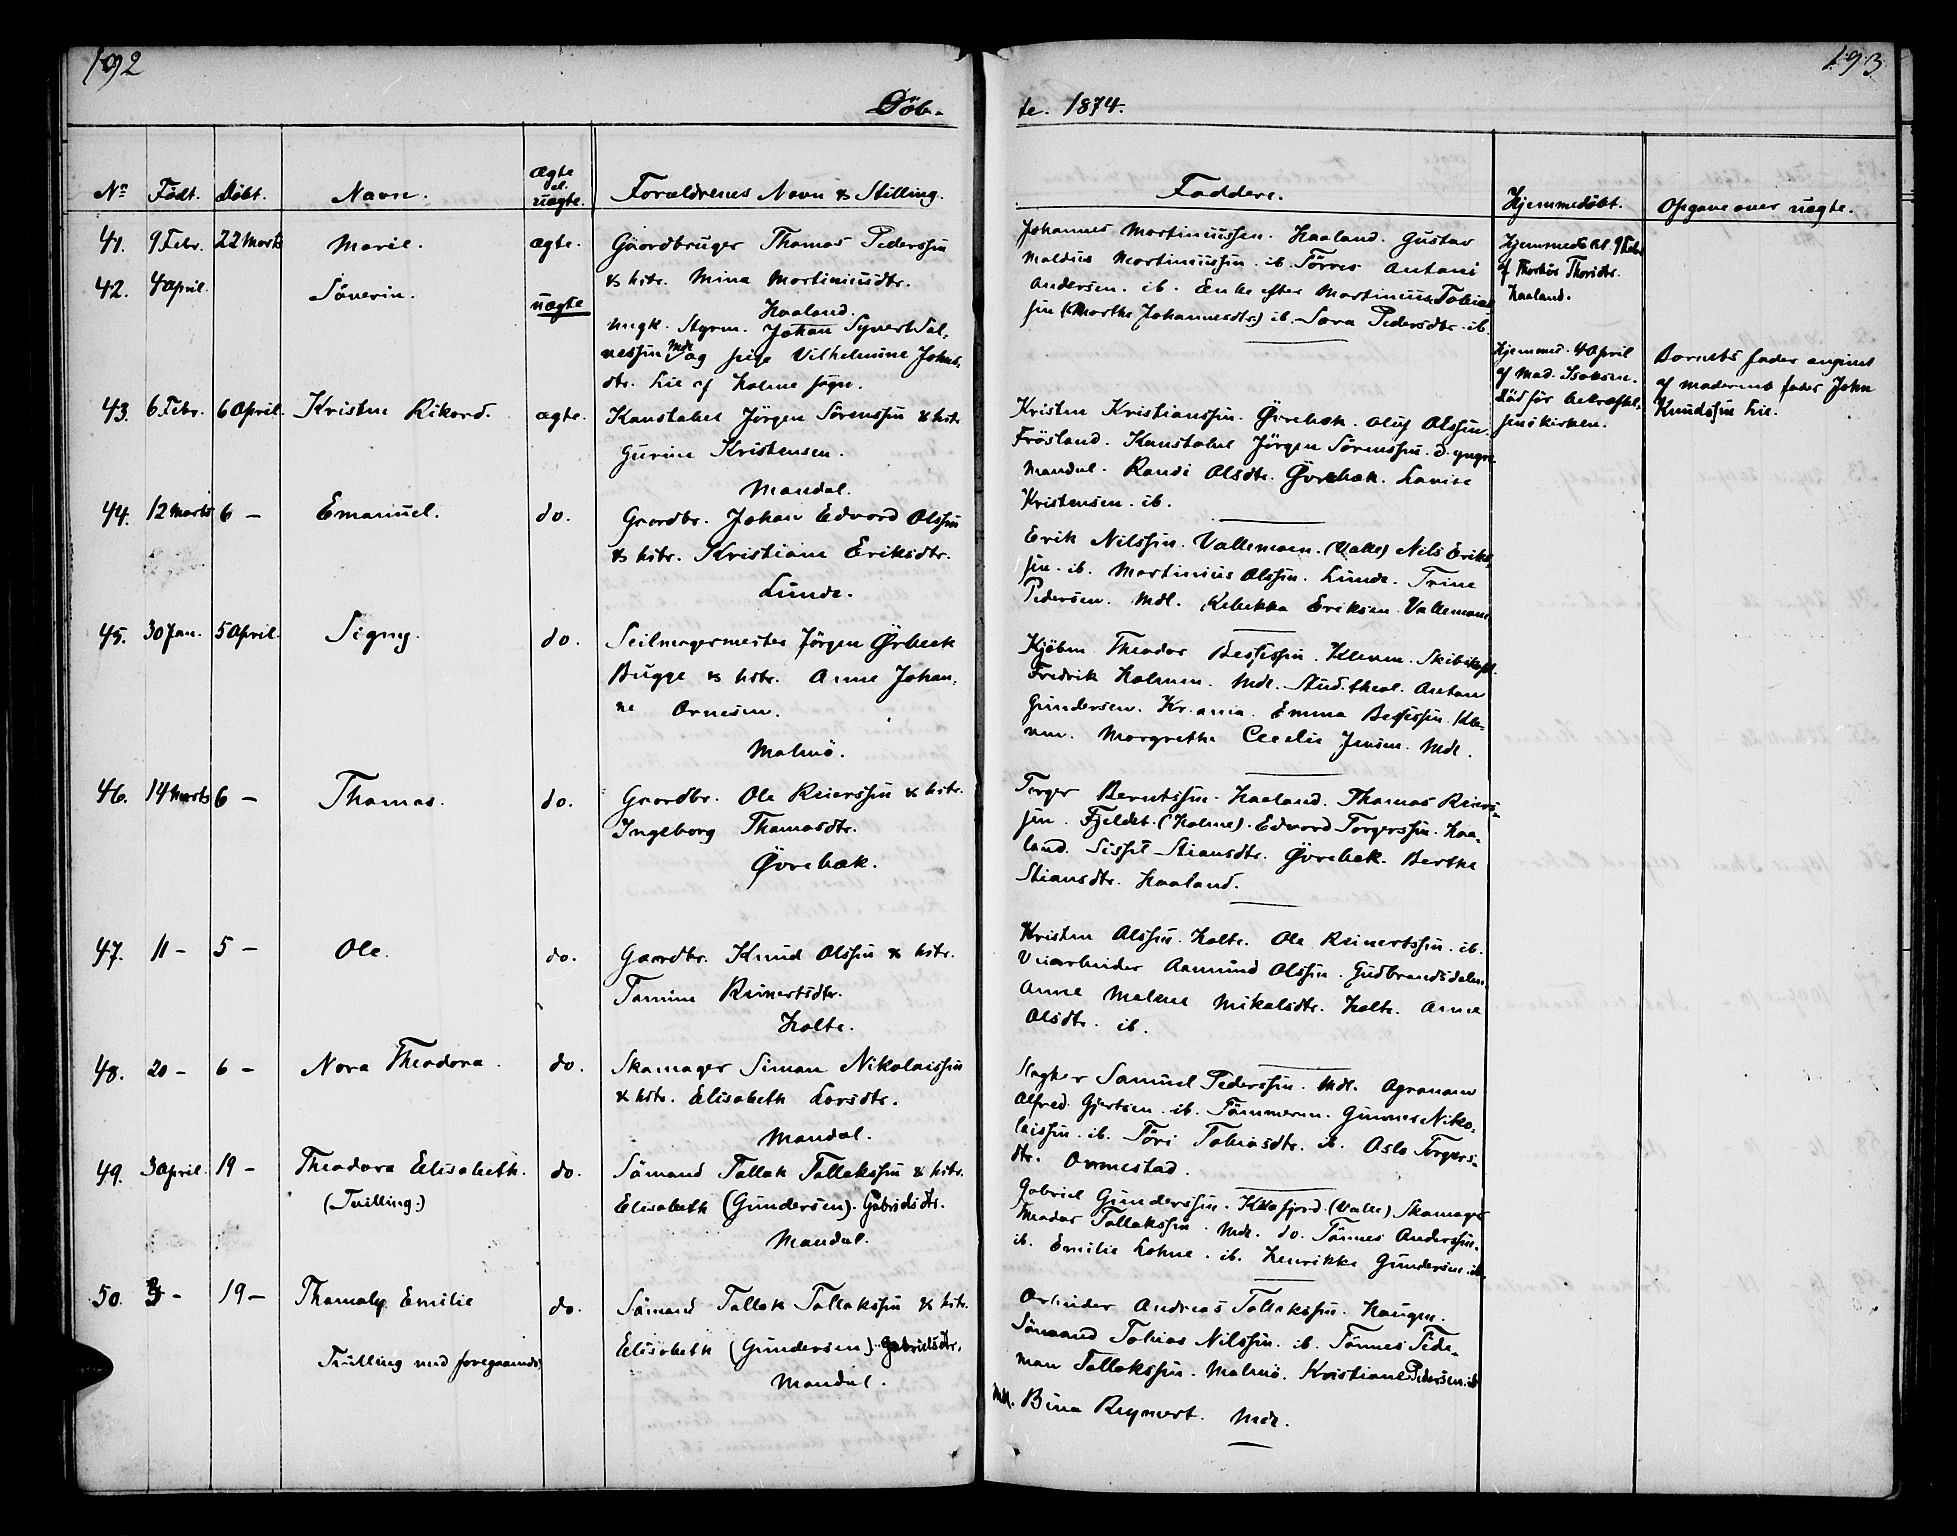 192
193
Døb-
te. 1874.
No Født. Døbt. Navn. ægte el. uægte. Forældrenes Navn & Stilling.
Faddere. Hjemmedøbt. Opgave over uægte.
41. 9 Febr. 22 Marts Marie. ægte. Gaardbruger Thomas Pederssen
& hstr. Mina Martiniusdtr.
Haaland.
Johannes Martiniussen. Haaland. Gustav
Maldus Martiniussen. ib. Törres Antoni
Andersen. ib. Enke efter Martinius Tobias
sen (Marthe Johannesdtr.) ib. Sara Pedersdtr. ib.
Hjemmedöbt. 9 Febr
af Thorhøs Thorsdtr.
Haaland.
42. 4 April. Söverin. uægte
ungk. Styrm. Johan Syvert Sal-
vessen Mdl og pige Vilhelmine Johns-
dtr. Lie af Holme sogn.
Hjemmed. 4 April
af Mad. Isaksen.
död før bekræftel-
sen i kirken.
Barnets fader angivet
af moderens fader John
Knudssen Lie.
43. 6 Febr. 6 April. Kristen Rikard. ægte. Konstabel Jörgen Sörenssen & hstr
Gurine Kristensen.
Mandal.
Kristen Kristianssen. Øvrebæk. Oluf Olssen.
Fröisland. Konstabel Jörgen Sörenssen. d. yngre
Mandal. Randi Olsdtr. Øvrebæk. Lavise
Kristensen. ib.
44. 12 Marts 6 – Emanuel. do. Gaardbr. Johan Edvard Olssen
& hstr. Kristiane Eriksdtr.
Lunde.
Erik Nilssen. Vallemoen. (Valle) Nils Eriks
sen. ib. Martinius Olssen. Lunde. Trine
Pedersen. Mdl. Rebekka Eriksen Vallemoen
45. 30 Jan. 5 April. Signy. do. Seilmagermester Jörgen Örbeck
Bugge & hstr. Anne Johan-
ne Arnesen.
Malmö.
Kjöbm. Theodor Bessesen. Kleven. Skibskpt.
Fredrik Holmen. Mdl. Stud. theol. Anton
Gundersen. Kr.ania. Emma Bessesen. Kle-
ven. Margrethe Cecilie Jensen. Mdl.
46. 14 Marts 6 – Thomas. do. Gaardbr. Ole Reierssen & hstr.
Ingeborg Thomasdtr.
Øvrebæk.
Torger Berntssen. Haaland. Thomas Reiers-
sen. Fjeldet. (Holme). Edvard Torgerssen. Haa-
land. Sissel Stiansdtr. Øvrebæk. Berthe
Stiansdtr. Haaland.
47. 11 – 5 – Ole. do. Gaardbr. Knud Olssen & hstr.
Tomine Reinertsdtr.
Holte.
Kristen Olssen. Holte. Ole Reinertssen. ib.
Veiarbeider Aamund Olssen. Gudbrandsdalen
Anne Malene Mikalsdtr. Holte. Anne
Olsdtr. ib.
48. 20 – 6 – Nora Theodora. do. Skomager Simon Nikolaissen
& hstr. Elisabeth Larsdtr.
Mandal.
Slagter Samuel Pederssen. Mdl. Agronom
Alfred Gjertsen. ib. Tömmerm. Gunnes Niko-
laissen. ib. Töri Tobiasdtr. ib. Aslo Torgers-
dtr. Ormestad.
49. 3 April. 19 – Theodora Elisabeth. do. Sömand Tallak Tallakssen & hstr.
(Tvilling.) Elisabeth (Gundersen). Gabrielsdtr.
Mandal.
Gabriel Gunderssen. (Valle) Skomager
Theodor Tallakssen. Mdl. do. Tönnes Anderssen.
ib. Emilie Lohne. ib. Henrikke Gundersen. ib.
50. 3 – 19 – Thomaly Emilie do. Sömand Tallak Tallakssen & hstr.
Tvilling med foregaaende Elisabeth (Gundersen). Gabrielsdtr.
Mandal.
Arbeider Andreas Tallakssen. Haugen.
Sömand Tobias Nilssen. ib. Tönnes Tide-
man Tallakssen. Malmö. Kristiane Pedersen. ib
Mdl. Bina Reynert. Mdl.